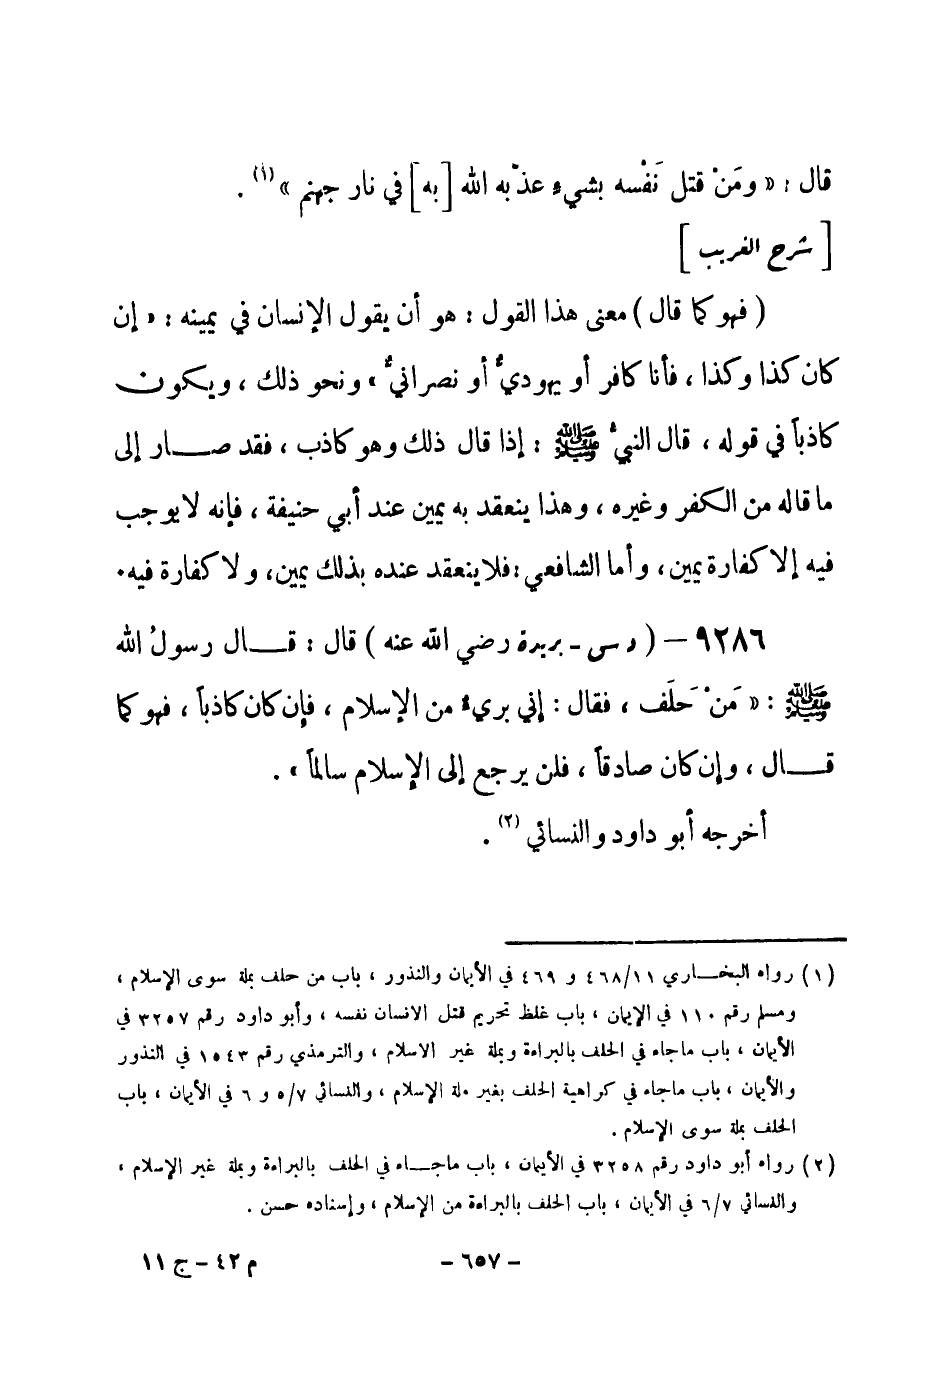 قال : « ومَنْ قتل نَفْسه بشيءٍ عذّبه الله [ به ] في نار جهنم » (١) .
[ شرح الغريب ]
( فهو كما قال ) معنى هذا القول : هو أن يقول الإنسان في يمينه : « إن
كان كذا وكذا ، فأنا كافر أو يهوديٌّ أو نصرانيٌّ » ونحو ذلك ، ويكون
كاذباً في قوله ، قال النبيُّ ﷺ : إذا قال ذلك وهو كاذب ، فقد صار إلى
ما قاله من الكفر وغيره ، وهذا ينعقد به يمين عند أبي حنيفة ، فإنه لا يوجب
فيه إلا كفارة يمين ، وأما الشافعي : فلا ينعقد عنده بذلك يمين ، ولا كفارة فيه .
٩٢٨٦ – ( د س - بريدة رضي الله عنه ) قال : قال رسولُ الله
ﷺ : « مَنْ حَلَف ، فقال : إني بريءٌ من الإسلام ، فإن كان كاذباً ، فهو كما
قال ، وإن كان صادقاً ، فلن يرجع إلى الإسلام سالماً » .
أخرجه أبو داود والنسائي (٢) .
(١) رواه البخاري ٤٦٨/١١ و ٤٦٩ في الأيمان والنذور ، باب من حلف بملة سوى الإسلام ،
ومسلم رقم ١١٠ في الإيمان ، باب غلظ تحريم قتل الانسان نفسه ، وأبو داود رقم ٣٢٥٧ في
الأيمان ، باب ماجاء في الحلف بالبراءة وبملة غير الاسلام ، والترمذي رقم ١٥٤٣ في النذور
والأيمان ، باب ماجاء في كراهية الحلف بغير ملة الإسلام ، والنسائي ٥/٧ و ٦ في الأيمان ، باب
الحلف بملة سوى الإسلام .
(٢) رواه أبو داود رقم ٣٢٥٨ في الأيمان ، باب ماجاء في الحلف بالبراءة وبملة غير الإسلام ،
والنسائي ٦/٧ في الأيمان ، باب الحلف بالبراءة من الإسلام ، وإسناده حسن .
- ٦٥٧ - م ٤٢ - ج ١١